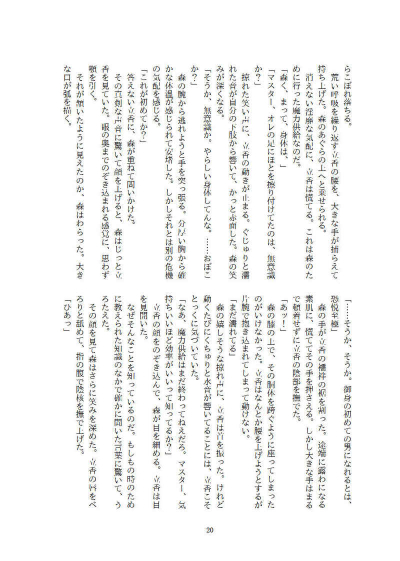 らこぼれ落ちる。
　荒い呼吸を繰り返す立香の腰を、大きな手が捕らえて
持ち上げた。森のあぐらの上へと乗せられる。
　消えない淫靡な気配に、立香は慌てる。これは森のた
めに行った魔力供給なのだ。
「森く、まって、身体は、」
「マスター、オレの足にほとを擦り付けてたのは、無意識
か？」
　掠れた笑い声に、立香の動きが止まる。ぐじゅりと濡
れた音が自分の下肢から響いて、かっと赤面した。森の笑
みが深くなる。
「そうか、無意識か。やらしい身体してんな。……おぼこ
か？」
　森の腕から逃れようと手を突っ張る。分厚い胸から確
かな体温が感じられて安堵した。しかしそれとは別の危機
の気配を感じる。
「これが初めてか？」
　答えない立香に、森が重ねて問いかけた。
　その真剣な声音に驚いて顔を上げると、森はじっと立
香を見ていた。眼の奥までのぞき込まれる感覚に、思わず
顎を引く。
　それが頷いたように見えたのか、森はわらった。大き
な口が弧を描く。
「……そうか、そうか。御身の初めての男になれるとは、
恐悦至極」
　森の手が立香の襦袢の裾を割った。途端に露わになる
素肌に、慌ててその手を押さえる。しかし大きな手はまる
で頓着せずに立香の陰部を撫でた。
「あッ！」
　森の膝の上で、その胴体を跨ぐように座ってしまった
のがいけなかった。立香はなんとか腰を上げようとするが
片腕で抱き込まれてしまって動けない。
「まだ濡れてる」
　森の嬉しそうな掠れ声に、立香は首を振った。けれど
動くたびにくちゅりと水音が響いてることには、立香こそ
とっくに気づいていた。
「なあ、魔力供給はまだ終わってねえだろ。マスター、気
持ちいいほど効率がいいって知ってるか？」
　立香の顔をのぞき込んで、森が目を細める。立香は目
を見開いた。
　なぜそんなことを知っているのだ。もしもの時のため
に教えられた知識のなかで確かに聞いた言葉に驚いて、う
ろたえた。
　その顔を見て森はさらに笑みを深めた。立香の唇をべ
ろりと舐めて、指の腹で陰核を撫で上げた。
「ひあっ」
20